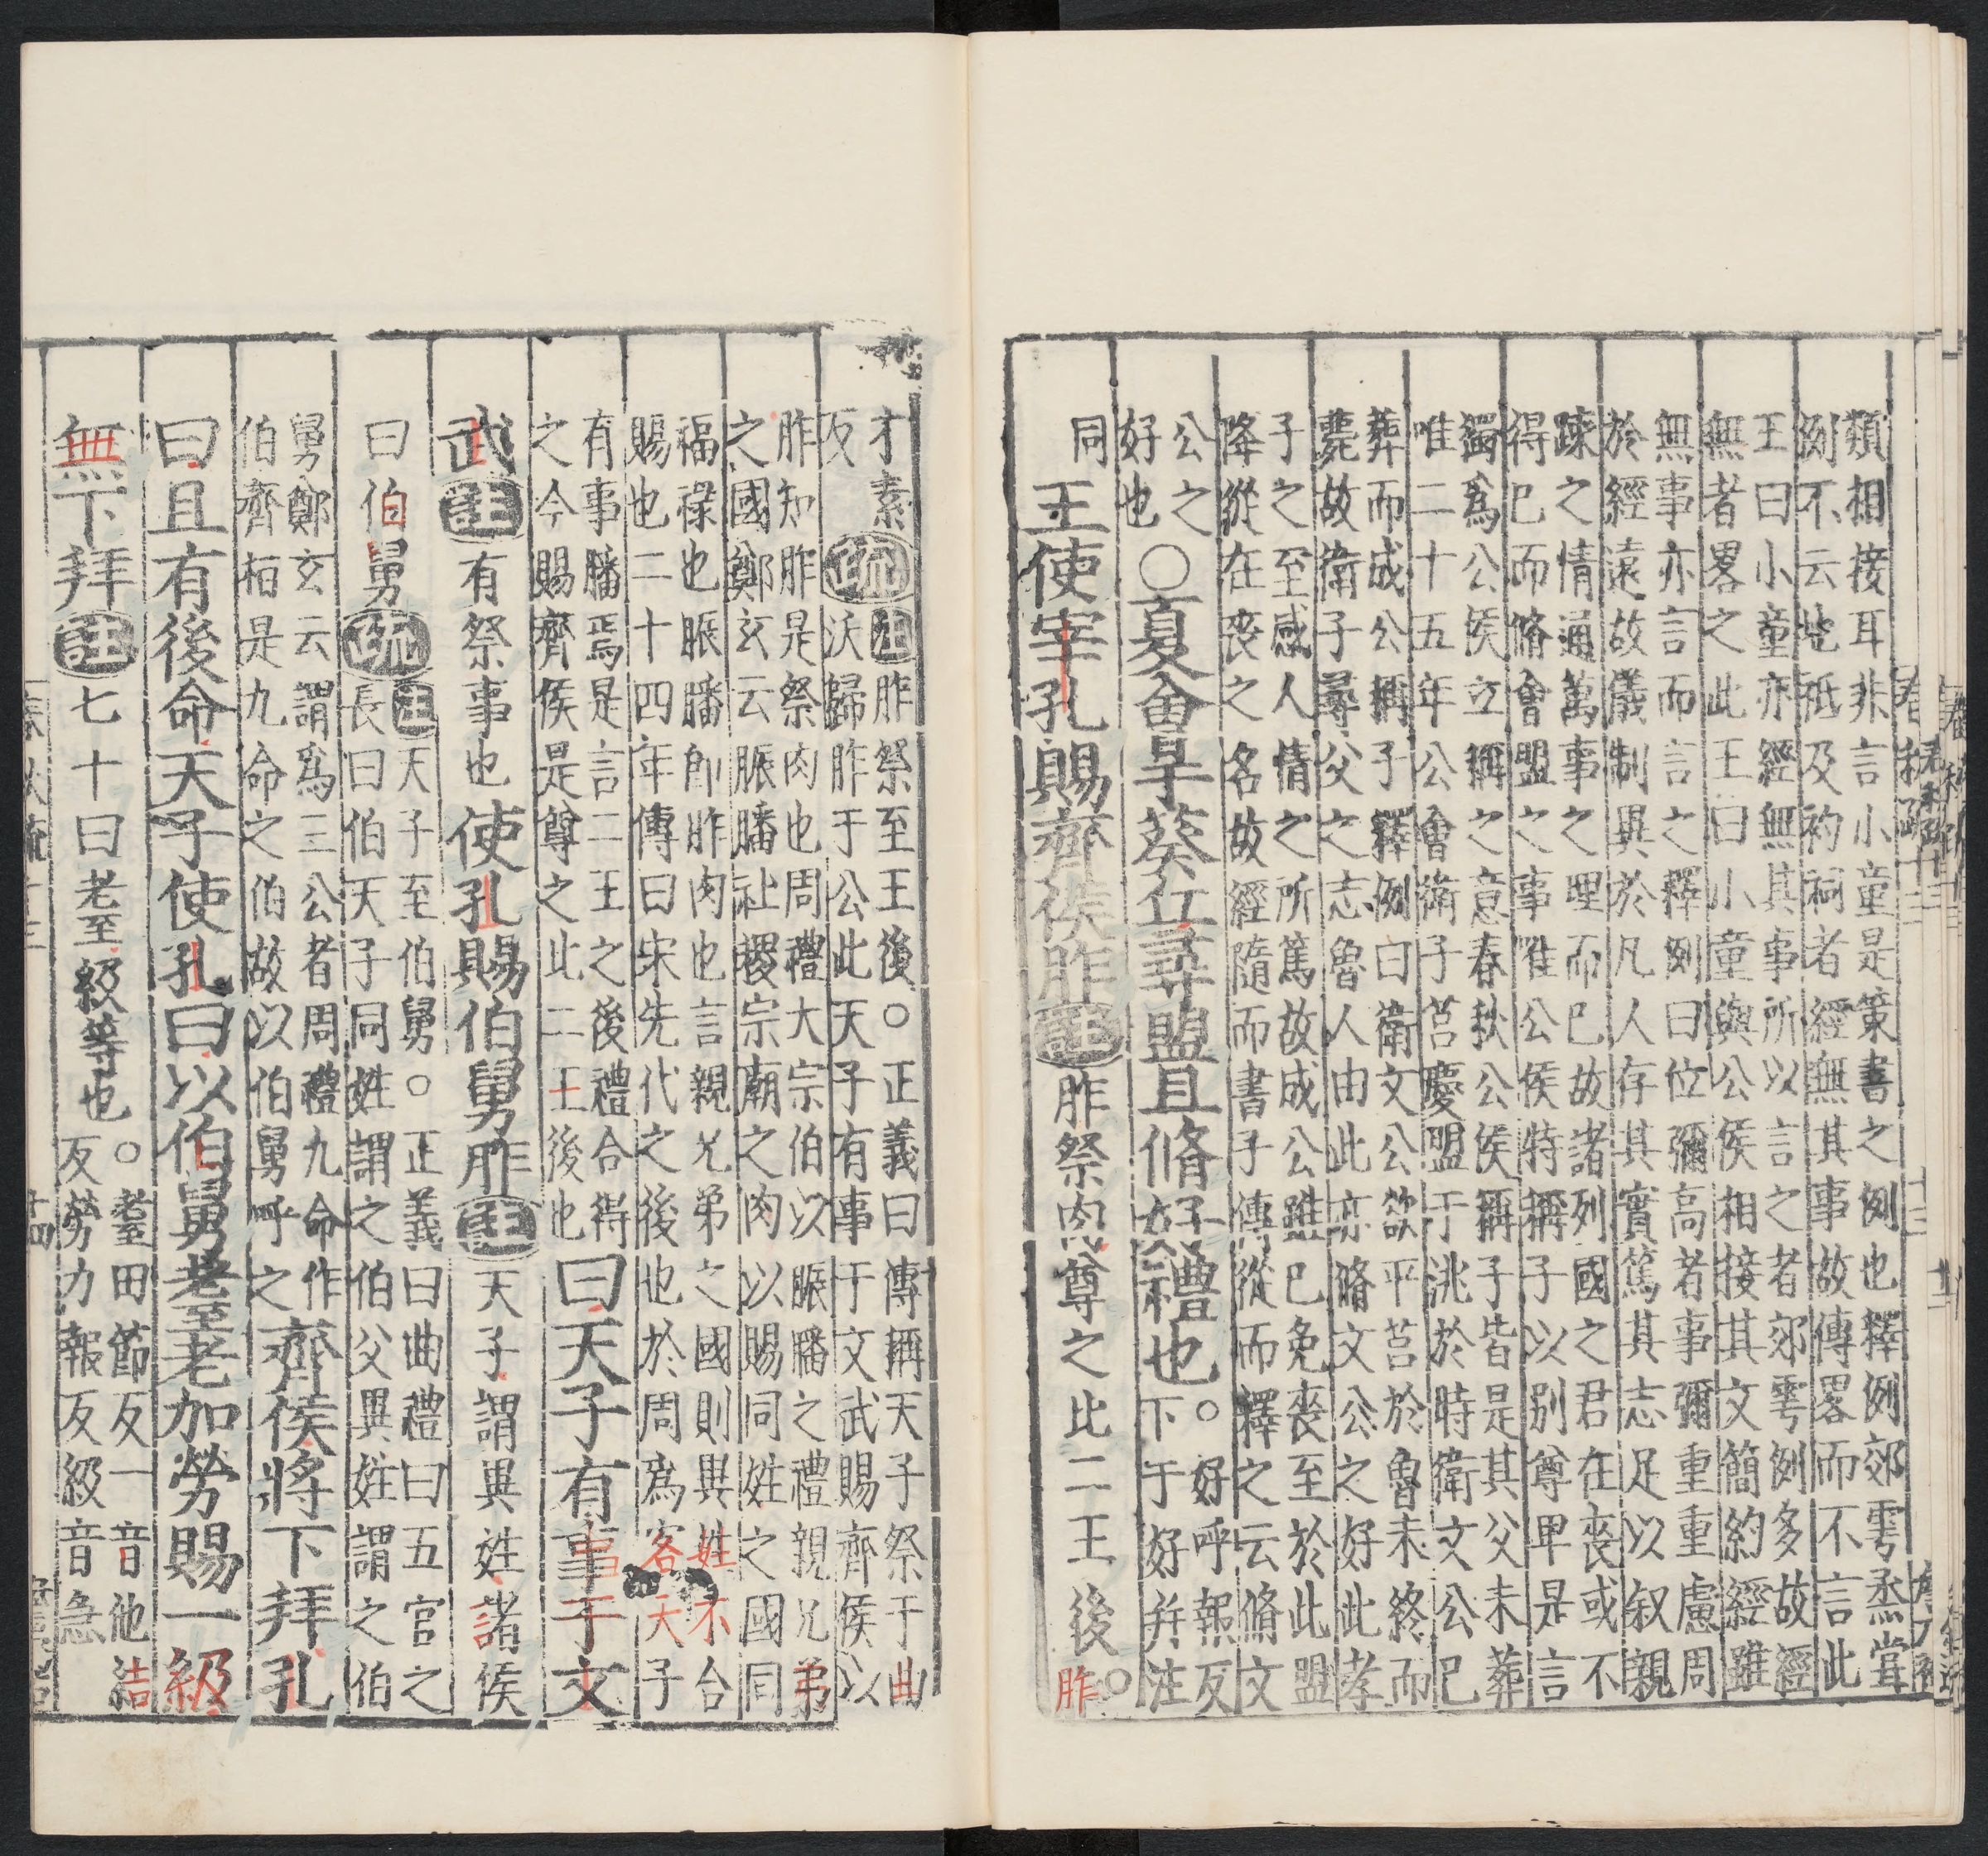 類相接耳非言小童是策書之例也釋例郊雩烝嘗
例不云地祗及礿祠者經無其事故傳畧而不言此
王曰小童亦經無其事所以言之者郊雩例多故經
無者畧之此王曰小童與公侯相接其文簡約經雖
無事亦言而言之釋例曰位彌高者事彌重重慮周
於經遠故儀制異於凡人存其實篤其志足以叙親
踈之情通萬事之理而已故諸列國之君在喪或不
得已而脩會盟之事唯公侯特稱子以別尊卑是言
獨爲公侯立稱之意春秋公侯稱子皆是其父未葬
唯二十五年公會衛子莒慶盟于洮於時衛文公已
葬而成公稱子釋例曰衛文公欲平莒於魯未終而
薨故衛子尋父之志魯人由此亦脩文公之好此孝
子之至感人情之所篤故成公雖已免喪至於此盟
降從在喪之名故經隨而書子傳從而釋之云脩文
公之
好也○夏會是葵丘尋盟且脩好禮也○好呼報反
下于好并注
同王使宰孔賜齊侯胙註胙祭肉尊之比二王後○胙
才素
反疏註胙祭至王後○正義曰傳稱天子祭于曲
沃歸胙于公此天子有事于文武賜齊侯以
胙知胙是祭肉也周禮大宗伯以脤膰之禮親兄弟
之國鄭玄云脤膰社稷宗廟之肉以賜同姓之國同
福祿也脤膰即胙肉也言親兄弟之國則異姓不合
賜也二十四年傳曰宋先代之後也於周爲客天子
有事膰焉是言二王之後禮合得
之今賜齊侯是尊之比二王後也曰天子有事于文
武註有祭事也使孔賜伯舅胙註天子謂異姓諸侯
曰伯舅疏註天子至伯舅○正義曰曲禮曰五官之
長曰伯天子同姓謂之伯父異姓謂之伯
舅鄭玄云謂爲三公者周禮九命作
伯齊桓是九命之伯故以伯舅呼之齊侯將下拜孔
曰且有後命天子使孔曰以伯舅耋老加勞賜一級
無下拜註七十曰耋級等也○耋田節反一音他結
反勞力報反級音急